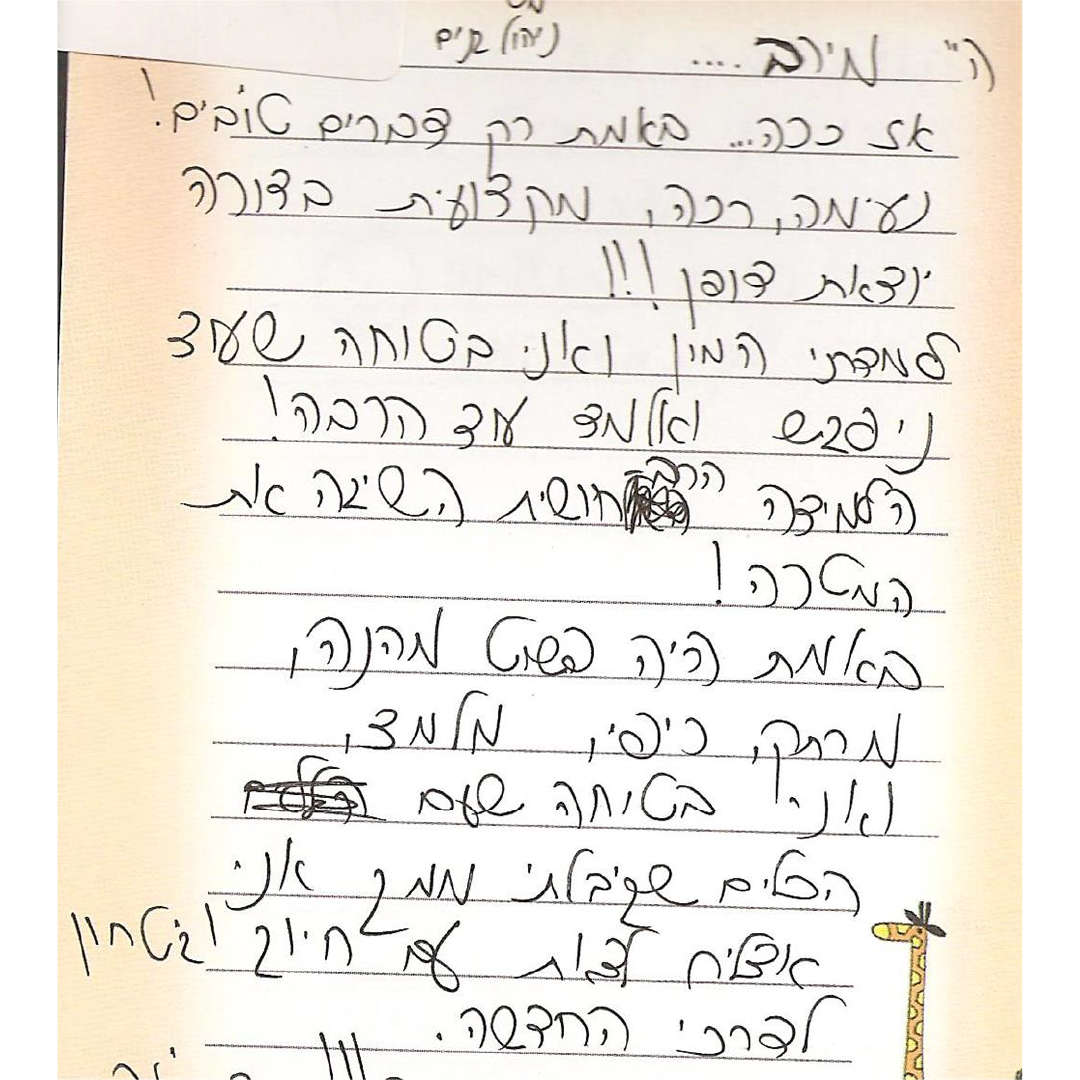 ניהול קיים
ה" מירב ....
אז ככה... באמת רק דברים טובים!
נעימה, רכה, מקצועית בצורה
יוצאת דופן!!!
למדתי המון ואני בטוחה שעוד
ניפגש ואלמד עוד הרבה!
הלמידה הרב-חושית השיגה את
המטרה!
באמת היה פשוט מהנה,
מרתק, כיפי, מלמד,
ואני בטוחה שעם
הכלים שקיבלתי ממך אני
אצליח לצאת עם חיוך וביטחון
לדרכי החדשה.